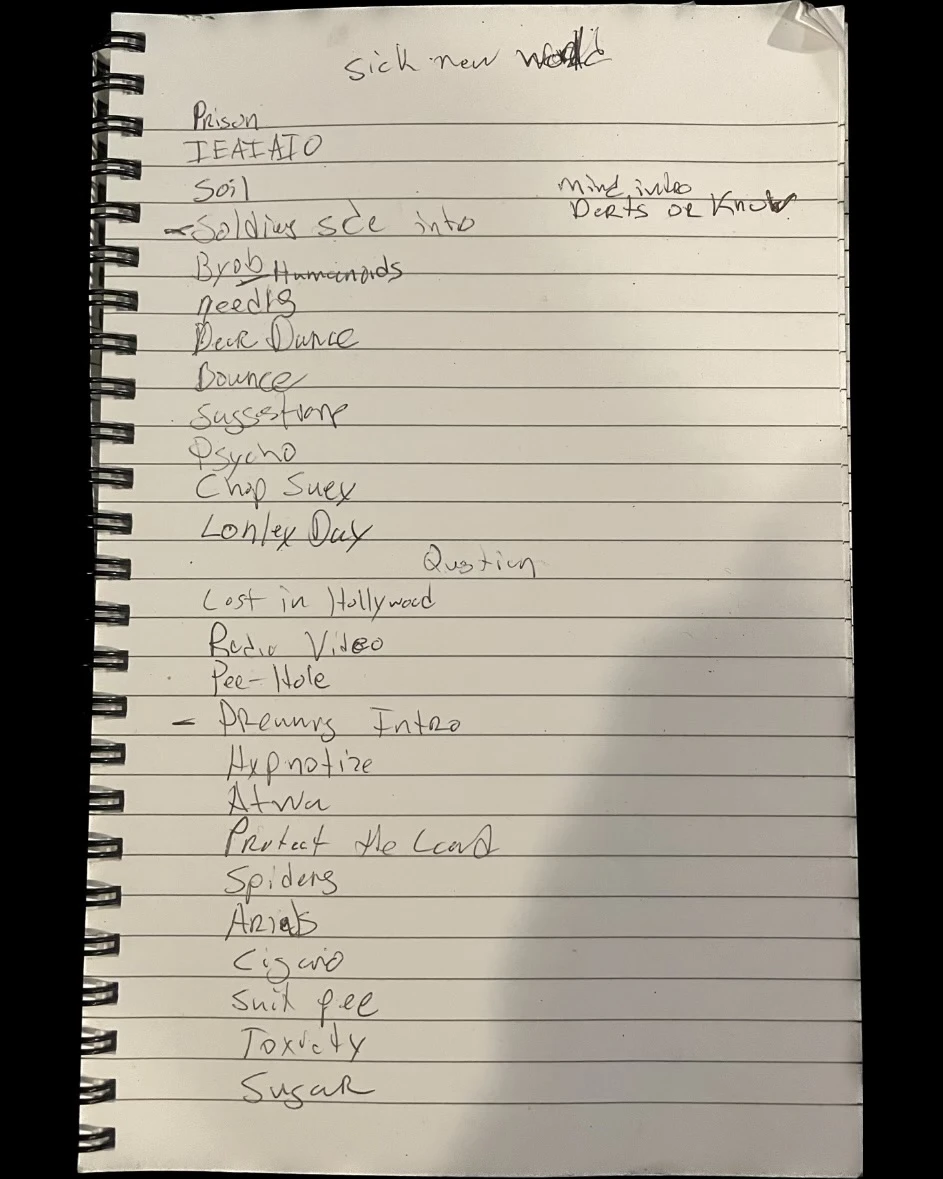 Sick new world
Prison
IEAIAIO
Soil
Mind intro
Darts or Know
- Soldier side into
Byob Humanoids
needls
Deer Dance
Bounce
Suggestions
Psycho
Chop Suey
Lonley Day
Question
Lost in Hollywood
Radio Video
Pee-Hole
- Intro
Hypnotize
Atwa
Protect the Land
Spiders
Arials
Cigaro
Suit pee
Toxicity
Sugar